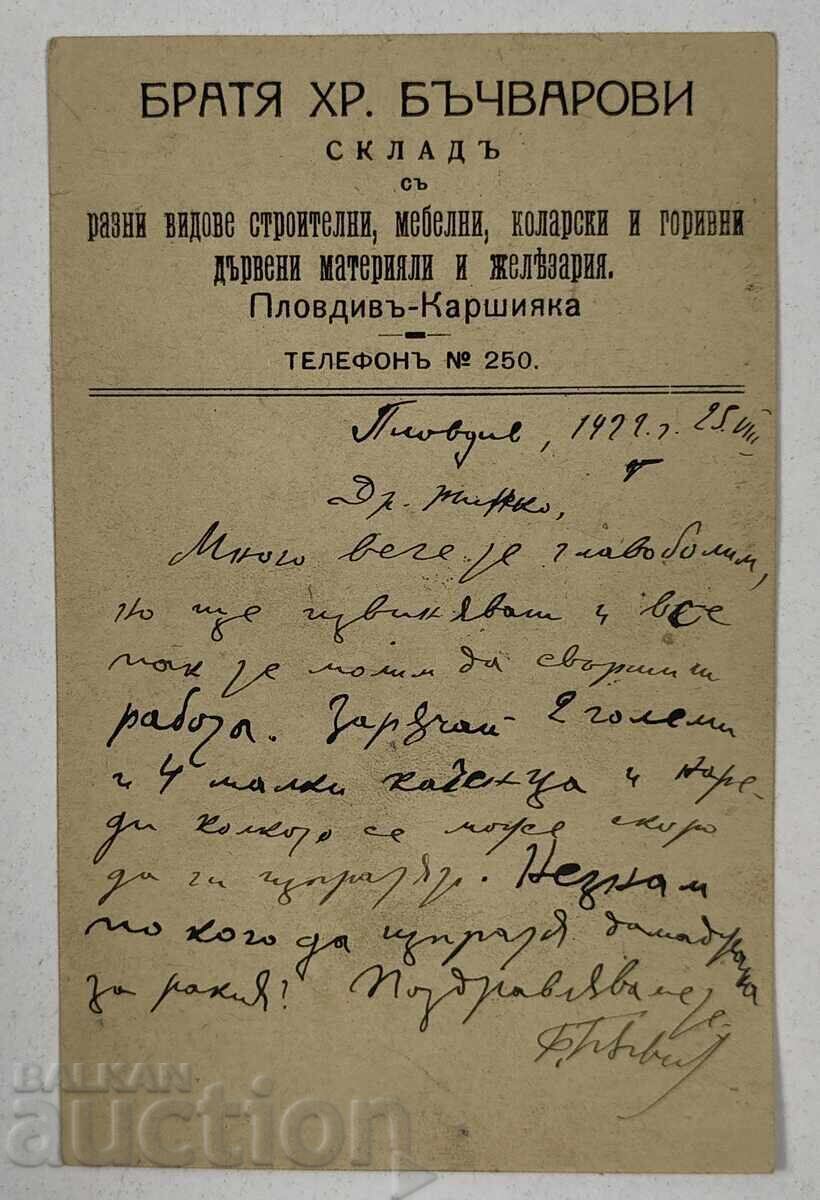 БРАТЯ ХР. БЪЧВАРОВИ
СКЛАДЪ
съ
разни видове строителни, мебелни, коларски и горивни
дървени материяли и желѣзария.
Пловдивъ-Каршияка
ТЕЛЕФОНЪ № 250.
Пловдив, 1922 г. 25 VIII
Др.
Много вече те главоболим,
но ще извиняваш и все
пак те молим да свършиш
работа. Заръчай 2 големи
и 4 малки каченца и наре-
ди колкото се може скоро
да ги изпратят. Незнам
по кого да изпратя дамаджана
за ракия! Поздравяваме те.
BALKAN
auction